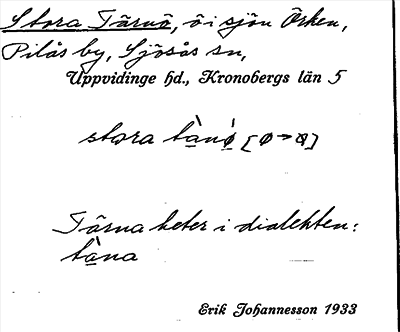 Stora Tärnö, ö i sjön Örken,
Pilås by, Sjösås sn,
Uppvidinge hd., Kronobergs län 5
stora tạ̀nǿ̣ [ø→ꞝ]
Tärna heter i dialekten:
tạ̀na
Erik Johannesson 1933